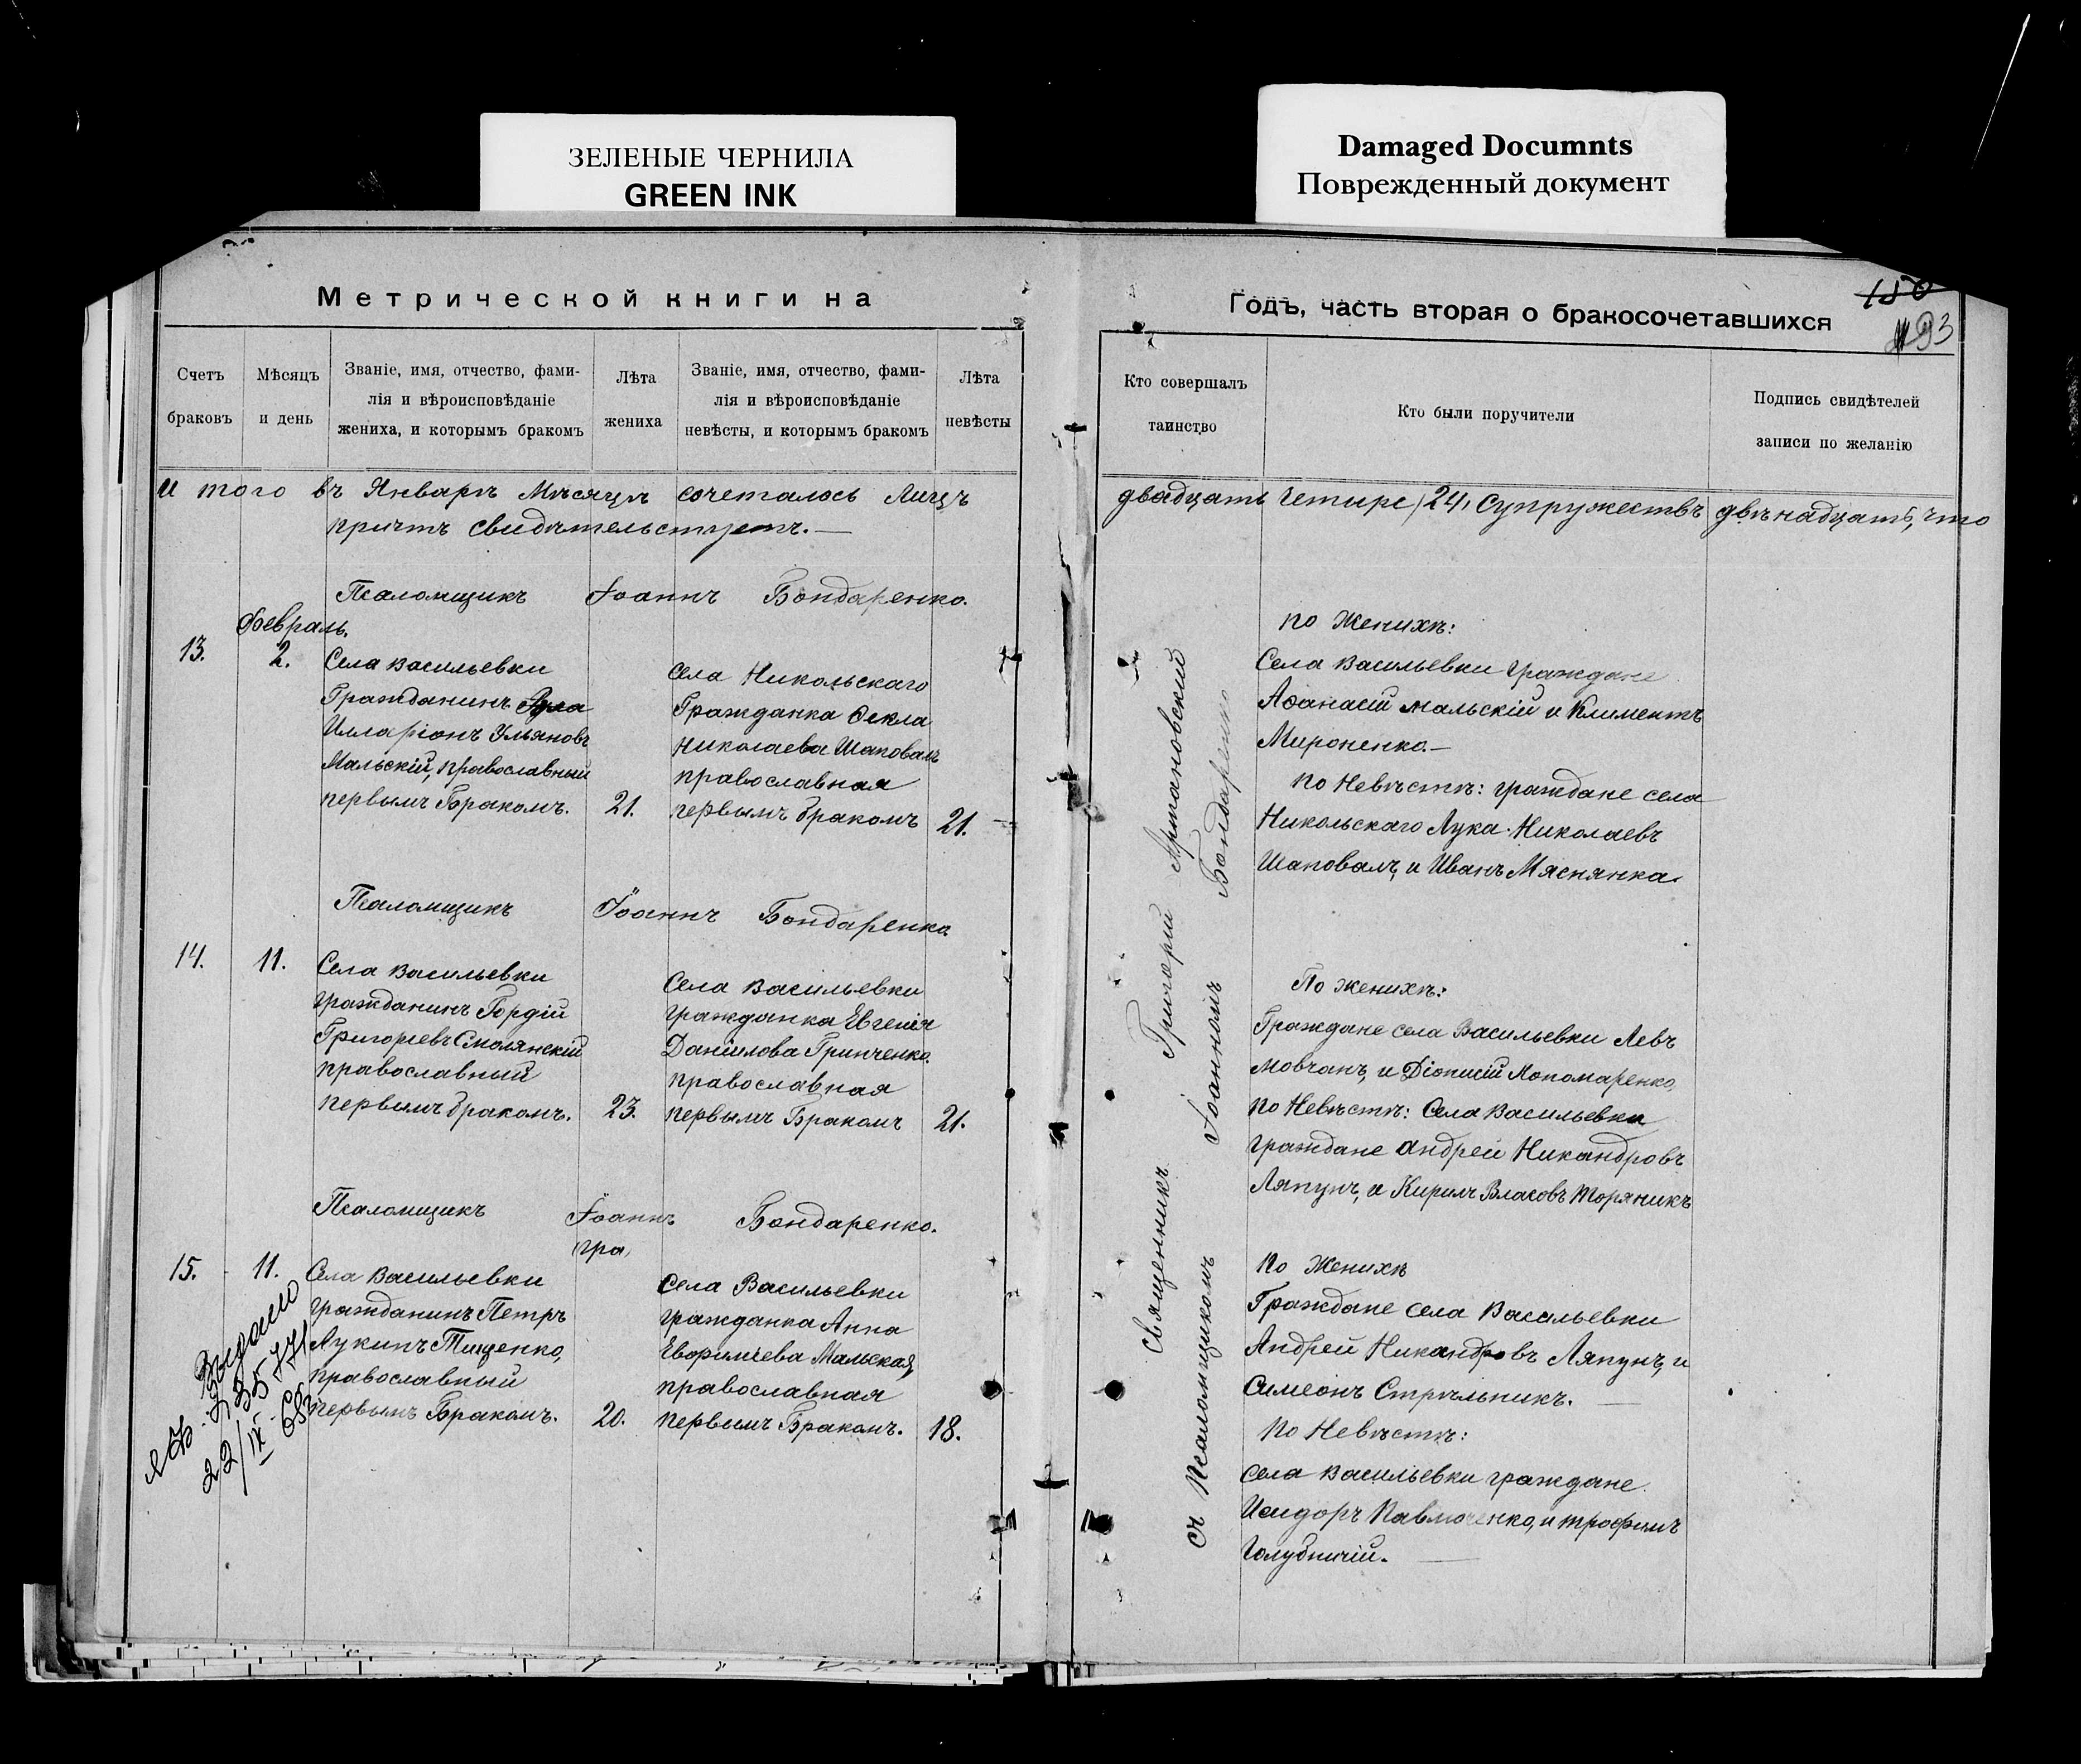 ЗЕЛЕНЫЕ ЧЕРНИЛА
GREEN INK
Damaged Documnts
Поврежденный документ
Метрической книги на
Счетъ браковъ
Мѣсяцъ и день
Званіе, имя, отчество, фами-
лія и вѣроисповѣданіе
жениха, и которымъ бракомъ
Лѣта жениха
Званіе, имя, отчество, фами-
лія и вѣроисповѣданіе
невѣсты, и которымъ бракомъ
Лѣта невѣсты
И того въ Январѣ Мѣсяцѣ сочеталось Лицъ
причтъ свидѣтельствуетъ.—
Псаломщикъ Іоаннъ Бондаренко.
Февраль.
13. 2.
Села Васильевки
Гражданинъ
Илларіонъ Ульяновъ
Мальскій, православный
первымъ Бракомъ. 21.
Села Никольскаго
Гражданка Ѳекла
Николаева Шаповалъ
православная
первымъ бракомъ 21.
Псаломщикъ Іоаннъ Бондаренко
14. 11.
Села Васильевки
гражданинъ Гордій
Григоріевъ Смолянскій
православный
первымъ бракомъ. 23.
Села Васильевки
гражданка Евгенія
Даніилова Гринченко.
православная
первымъ Бракомъ 21.
Псаломщикъ Іоаннъ Бондаренко.
/гра/
15. 11.
Села Васильевки
гражданинъ Петръ
Лукинъ Тищенко,
православный
первымъ Бракомъ. 20.
Села Васильевки
гражданка Анна
Евфиміева Мальская,
православная
первымъ Бракомъ. 18.
22/IX
Годъ, часть вторая о бракосочетавшихся
150
93
Кто совершалъ
таинство
Кто были поручители
Подпись свидѣтелей
записи по желанію
двадцать четыре /24, супружествъ двѣнадцать, что
Священникъ Григорій
съ Псаломщикомъ Іоанномъ Бондаренко
по Женихѣ:
Села Васильевки граждане
Аѳанасій Мальскій и Климентъ
Мироненко.—
по Невѣстѣ: граждане села
Никольскаго Лука Николаевъ
Шаповалъ, и Иванъ Мяснянка.
По женихѣ:
Граждане села Васильевки Левъ
Мовчанъ, и Діонисій Пономаренко,
по Невѣстѣ: Села Васильевки
граждане Андрей Никандровъ
Ляпунъ, и Кирилъ Власовъ
по Женихѣ
Граждане села Васильевки
Андрей Никандровъ Ляпунъ, и
Симеонъ Стрѣльникъ.
по Невѣстѣ:
Села Васильевки граждане
Исидоръ и Трофимъ
Голубничій.—